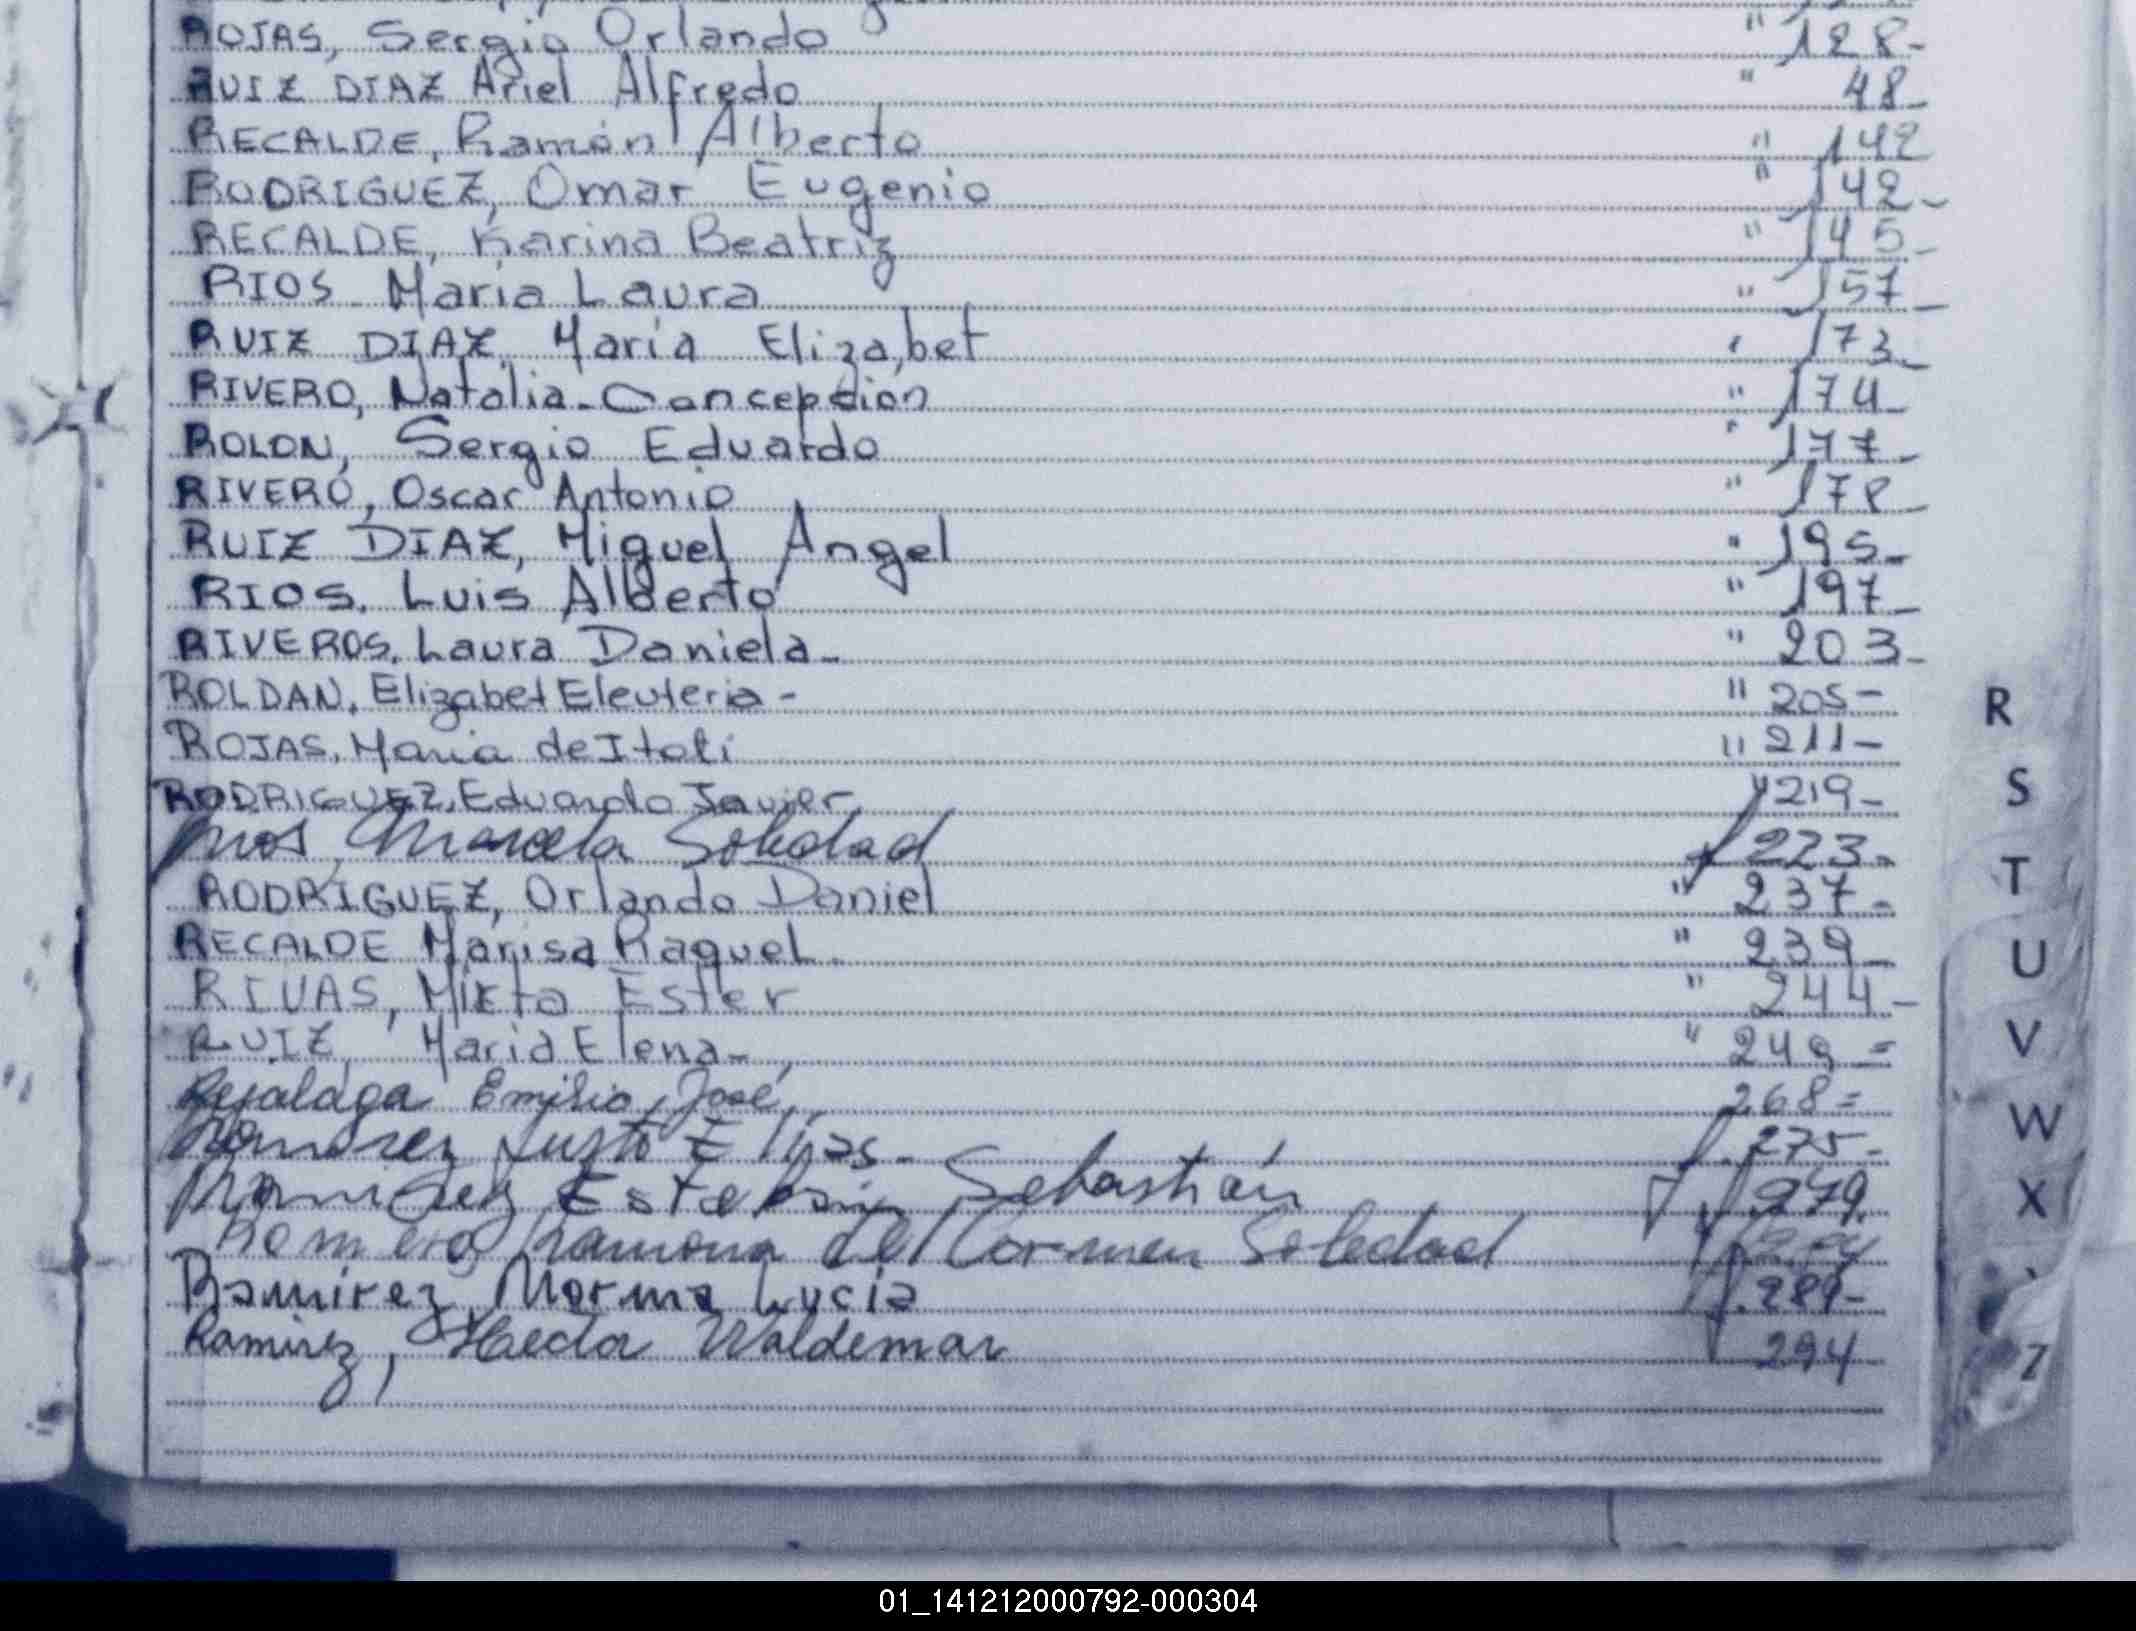 ROJAS, Sergio Orlando " 128-
RUIZ DIAZ Ariel Alfredo " 48-
RECALDE, Ramón Alberto " 142
RODRIGUEZ, Omar Eugenio " 142-
RECALDE, Karina Beatriz " 145-
RIOS Maria Laura " 157-
RUIZ DIAZ, María Elizabet " 173-
RIVERO, Natalia-Concepcion " 174-
ROLON, Sergio Eduardo " 177-
RIVERO, Oscar Antonio " 178-
RUIZ DIAZ, Miguel Angel " 195-
RIOS, Luis Alberto " 197-
RIVEROS, Laura Daniela- " 203-
ROLDAN, Elizabet Eleuteria- " 205-
ROJAS, Maria de Itati " 211-
RODRIGUEZ, Eduardo Javier " 219-
Rios, Marcela Soledad f 223-
RODRIGUEZ, Orlando Daniel " 237-
RECALDE Marisa Raquel- " 239-
RIVAS, Mirta Ester " 244-
RUIZ, Maria Elena- " 249=
Rejalaga Emilio José, 268=
Ramirez Justo Elias- f. 275-
Ramirez Esteban Sebastián f. 279.
Romero Ramona del Carmen Soledad
Ramirez, Norma Lucia f. 289-
Ramirez, Hector Waldemar 294-
R
S
T
U
V
W
X
Z
01_141212000792-000304